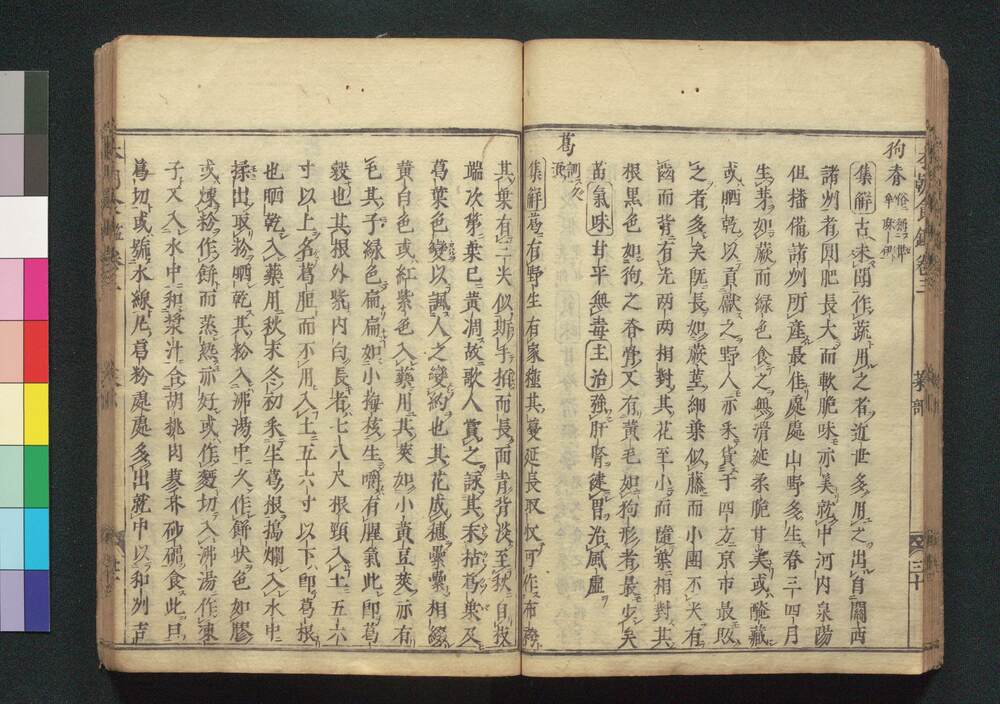 狗脊
集解古未聞作蔬用之者近世多用之出自關西
諸州者間肥長大而軟脆味亦美就中河内泉陽
但播備諸州所產最佳處處山野多生春三四月
生芽如蕨而綠色食之無滑涎柔脆甘美或醃藏
或晒乾以貢獻之野人亦采貨于四方京市最取
之者多矣既長如蕨莖細葉似藤而小團不尖有
齒而背有光兩兩相對其花至小而隨葉相對其
根黑色如狗之脊骨又有黃毛如狗形者最少矣
苗氣味甘平無毒主治強肝腎健骨治風虛
葛
集解葛有野生有家種其蔓延長取收可作布
其葉有三尖似楓手指而長而青背淡至秋自拔
端次第葉已黃凋故歌人賞之詠其禾枯葛葉及
葛葉色變以諷人之變約也其花成穗纍纍相綴
黃白色或紅紫色入藥用其莢如小黃豆莢亦有
毛其子綠色扁扁如小梅核生嚼有腥氣此即葛
穀也其根外紫内白長者七八尺根頸入土五六
寸以上名葛脰而不用入土五六寸以下即葛根
也晒乾入藥用秋末冬初采生葛根搗爛入水中
揉出取粉晒乾其粉入沸湯中久作餅狀色如膠
或煉粉作餅而蒸熟亦好或作麪切入沸湯作凍
子又入水中和漿汁合胡桃肉蓼芥砂糖食此曰
葛切或號水線凡葛粉處處多出就中以和州吉
菜部
三十